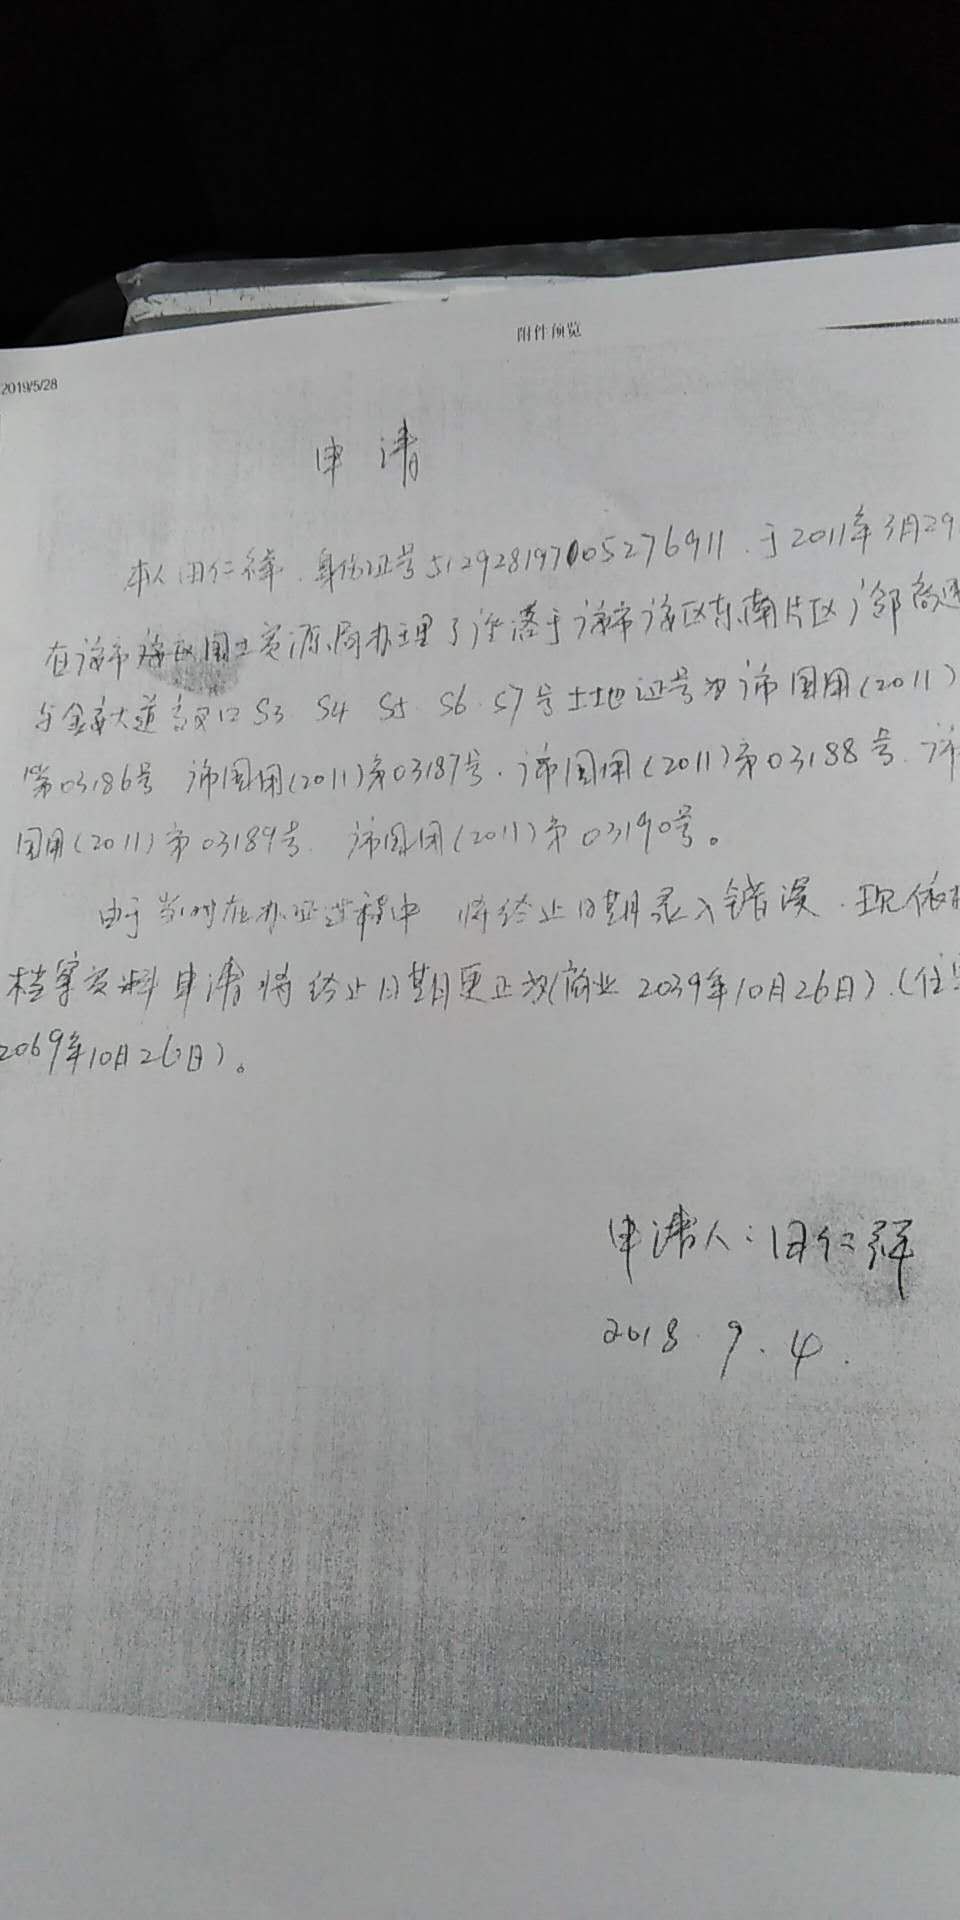 附件预览
2019/5/28
申请
本人田仁 身份证号512928197005276911.于2011年3月29
在 市 区国土资源局办理了 落于 市 区东南片区
与金 大道 口 S3 S4 S5 S6 S7号土地证号为 市国用(2011)
第03186号 市国用(2011)第03187号. 市国用(2011)第03188号.
国用(2011)第03189号. 市国用(2011)第03190号。
由于当时在办证过程中 将终止日期录入错误.现依
档案资料申请将终止日期更正为(商业 2039年10月26日).(住
2069年10月26日)。
申请人:田仁群
2018.9.4.